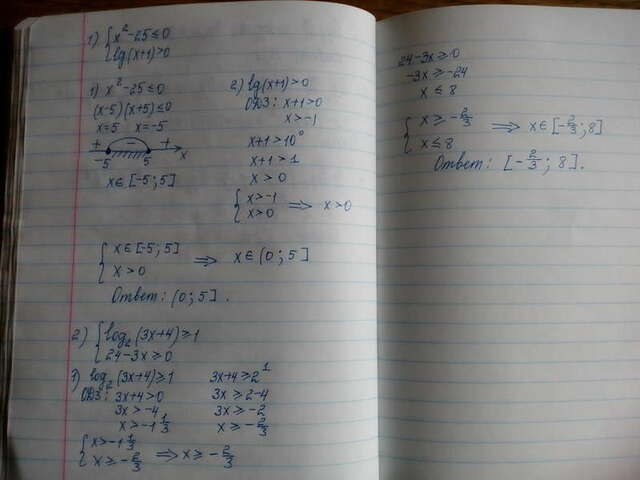 1) { x² - 25 ≤ 0
lg(x+1) > 0
1) x² - 25 ≤ 0
(x-5)(x+5) ≤ 0
x=5 x=-5
+ - +
-5 5 x
x∈[-5; 5]
2) lg(x+1) > 0
ОДЗ: x+1>0
x>-1
x+1>10⁰
x+1>1
x>0
{ x>-1
x>0 ⇒ x>0
{ x∈[-5; 5]
x>0 ⇒ x∈(0; 5]
Ответ: (0; 5].
2) { log₂(3x+4) ≥ 1
24-3x ≥ 0
1) log₂(3x+4) ≥ 1
ОДЗ: 3x+4>0
3x>-4
x>-1 1/3
3x+4 ≥ 2¹
3x ≥ 2-4
3x ≥ -2
x ≥ -2/3
{ x>-1 1/3
x ≥ -2/3 ⇒ x ≥ -2/3
24-3x ≥ 0
-3x ≥ -24
x ≤ 8
{ x ≥ -2/3
x ≤ 8 ⇒ x∈[-2/3; 8]
Ответ: [-2/3; 8].